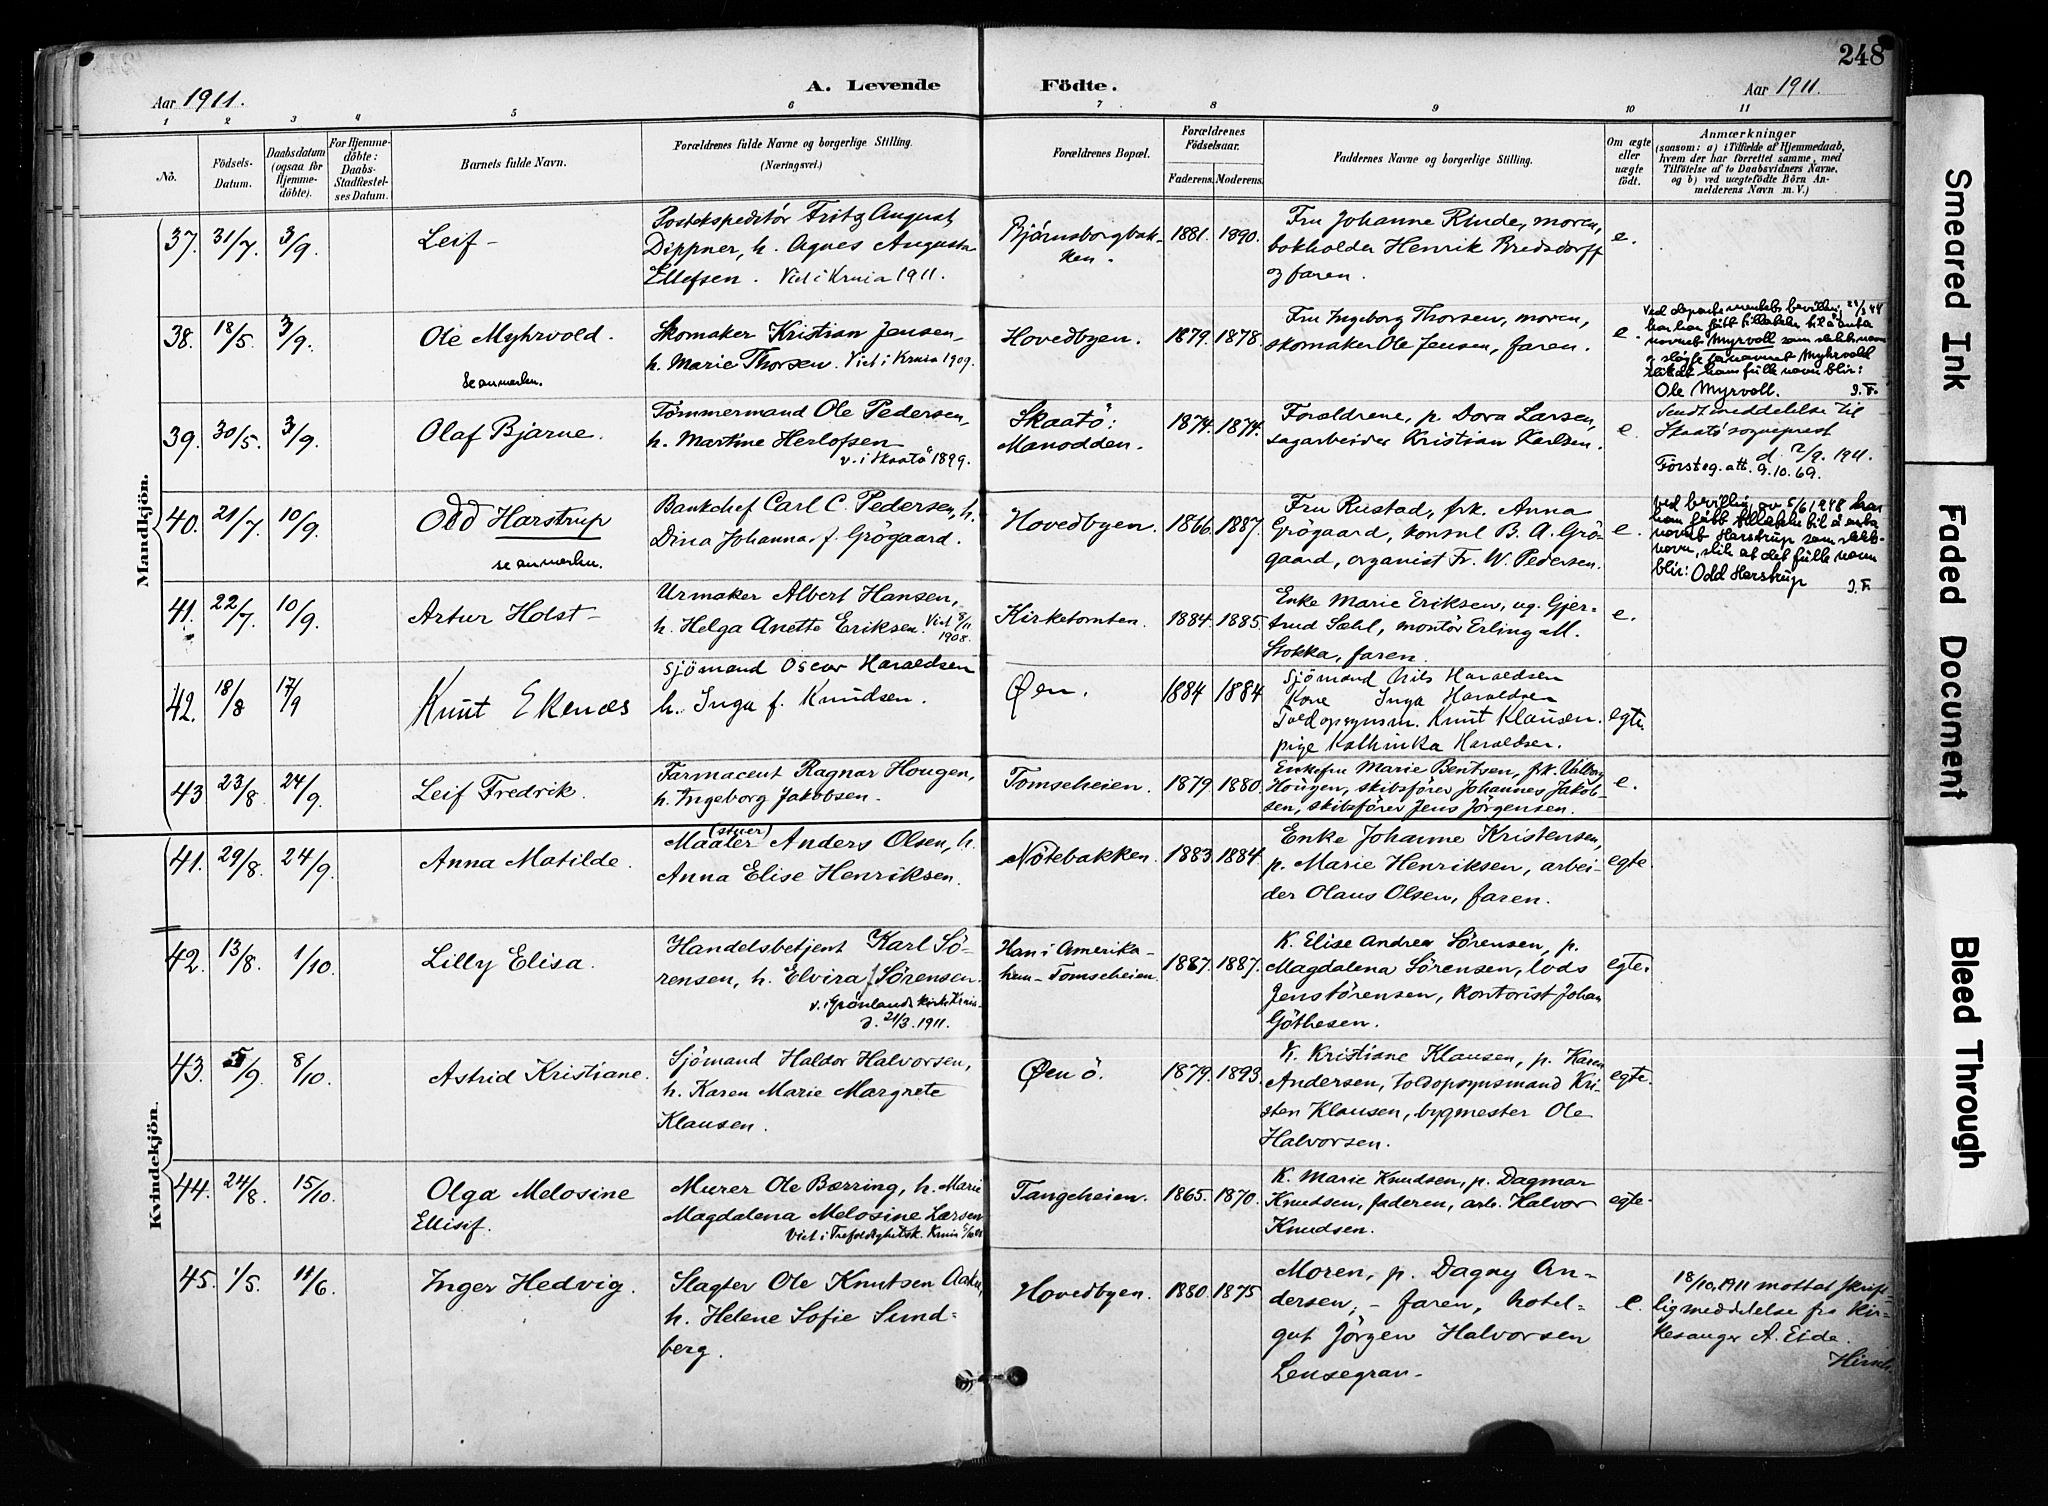 248
Aar 1911.
A. Levende
Födte.
Aar 1911.
1 2 3 4 5 6 7 8 9 10 11
No.
Födsels-
Datum.
Daabsdatum
(ogsaa for
Hjemme-
döbte).
For Hjemme-
döbte:
Daabs-
Stadfæstel-
ses Datum.
Barnets fulde Navn.
Forældrenes fulde Navne og borgerlige Stilling.
(Næringsvei.)
Forældrenes Bopæl.
Forældrenes
Födselsaar.
Faderens. Moderens.
Faddernes Navne og borgerlige Stilling.
Om ægte
eller
uægte
födt.
Anmærkninger
(saasom: a) i Tilfælde af Hjemmedaab,
hvem der har forrettet samme, med
Tilföielse af to Daabsvidners Navne,
og b) ved uægtefödte Börn An-
melderens Navn m. V.)
Mandkjön.
37. 31/7. 3/9. Leif -
Postekspeditör Fritz August
Dippner, h. Agnes Augusta
Ellefsen. Viet i Krnia 1911.
Bjørnsborgbak-
ken.
1881. 1890.
Fru Johanne Rinde, moren,
bokholder Henrik Bredsdorff
og faren.
e.
38. 18/5. 3/9. Ole Myhrvold.
se anmerkn.
Skomaker Kristian Jensen,
h. Marie Thorsen. Viet i Krnia 1909.
Hovedbyen. 1879. 1878.
Fru Ingeborg Thorsen, moren,
skomaker Ole Jensen, faren.
e.
Ved departementets bevilln.
har han fått tillatelse til å anta
navnet Myrvoll som slektsnavn
og sløyfe fornavnet Myhrvold
slik at hans fulle navn blir:
Ole Myrvoll. I.F.
39. 30/5. 3/9. Olaf Bjarne.
Tömmermand Ole Pedersen,
h. Martine Herlofsen
v. i Skaatö 1899.
Skaatö:
Manodden.
1874. 1874.
Forældrene, p. Dora Larsen,
sagarbeider Kristian Karlsen.
e.
Sendt meddelelse til
Skaatö sogneprest
d. 2/9. 1911.
Förstég. att. 9.10.69.
40. 21/7. 10/9. Odd Harstrup
se anmerkn.
Bankchef Carl C. Pedersen, h.
Dina Johanna f. Grögaard.
Hovedbyen. 1866. 1887.
Fru Rustad, frk. Anna
Grögaard, konsul B. A. Grö-
gaard, organist Fr. W. Pedersen.
e.
Ved bevilln. av 5/6 1948 har
han fått tillatelse til å anta
navnet Harstrup som slekts-
navn, slik at det fulle navn
blir: Odd Harstrup I.F.
41. 22/7. 10/9. Artur Holst -
Urmaker Albert Hansen,
h. Helga Anette Eriksen. Viet 8/11
1908.
Kirketomten. 1884. 1885.
Enke Marie Eriksen, ug. Gjer-
trud Sæhl, montör Erling M.
Stokka, faren.
e.
42. 18/8 17/9 Knut Ekenæs
Sjömand Oscar Haraldsen
h. Inga f. Knudsen.
Øen. 1884 1884
Sjömand Nils Haraldsen
Kone Inga Haraldsen
Toldopsynsm. Knut Klausen.
pige Kathinka Haraldsen.
egte.
43 23/8. 24/9. Leif Fredrik.
Farmaceut Ragnar Hougen,
h. Ingeborg Jakobsen.
Tomseheien. 1879 1880.
Enkefru Marie Bentsen, frk. Valborg
Hougen, skibsförer Johannes Jakob-
sen, skibsförer Jens Jörgensen.
e.
Kvindekjön.
41. 29/8. 24/9. Anna Matilde.
Maaler (stuer) Anders Olsen, h.
Anna Elise Henriksen.
Nötebakken. 1883. 1884.
Enke Johanne Kristensen,
p. Marie Henriksen, arbei-
der Olaus Olsen, faren.
egte.
42. 13/8. 1/10. Lilly Elisa.
Handelsbetjent Karl Sö-
rensen, h. Elvira f. Sørensen.
v. i Grönlands kirke Krnia
d. 21/3. 1911.
Han i Amerika -
hun - Tomseheien.
1887. 1887.
K. Elise Andrea Sörensen, p.
Magdalena Sörensen, lods
Jens Sörensen, kontorist Johan
Göthesen.
egte.
43. 5/9. 8/10. Astrid Kristiane.
Sjömand Haldor Halvorsen,
h. Karen Marie Margrete
Klausen.
Øen ö. 1879. 1893.
K. Kristiane Klausen, p. Karen
Andersen, toldopsynsmand Kri-
sten Klausen, bygmester Ole
Halvorsen.
egte.
44. 24/8. 15/10. Olga Melosine
Ellisif.
Murer Ole Bærring, h. Marie
Magdalena Melosine Larsen
Viet i Trefoldighetsk. Krnia
Tangeheien. 1865. 1870.
K. Marie Knudsen, p. Dagmar
Knudsen, faderen, arb. Halvor
Knudsen.
egte.
45. 1/5. 11/6. Inger Hedvig.
Slagter Ole Knutsen
h. Helene Sofie Sund-
berg.
Hovedbyen. 1880. 1875
Moren, p. Dagny An-
dersen, - faren, hotel-
gut Jörgen Halvorsen
Lensegran.
e.
18/10.1911 mottat skrift-
lig meddelelse fra kir-
kesanger A. Eide.
Hirsch
Smeared Ink
Faded Document
Bleed Through